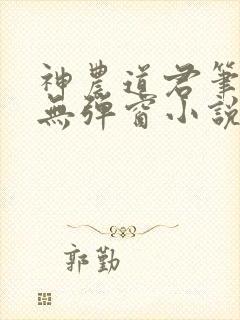 神農道君筆
無彈窗小說
郭勤